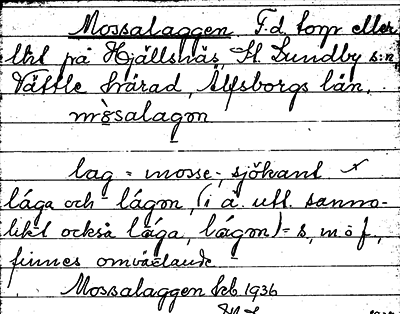 Mossalaggen. F.d. torp eller
litet på Hjällsnäs, St. Lundby s:n
Vättle härad, Älfsborgs län.
mosalagon
lag = mosse, sjökant
låga och lågon, (i ä. utt. sanno-
likt också låga, lågon) = s, m o f,
finnes omväxlande
Mossalaggen feb. 1936